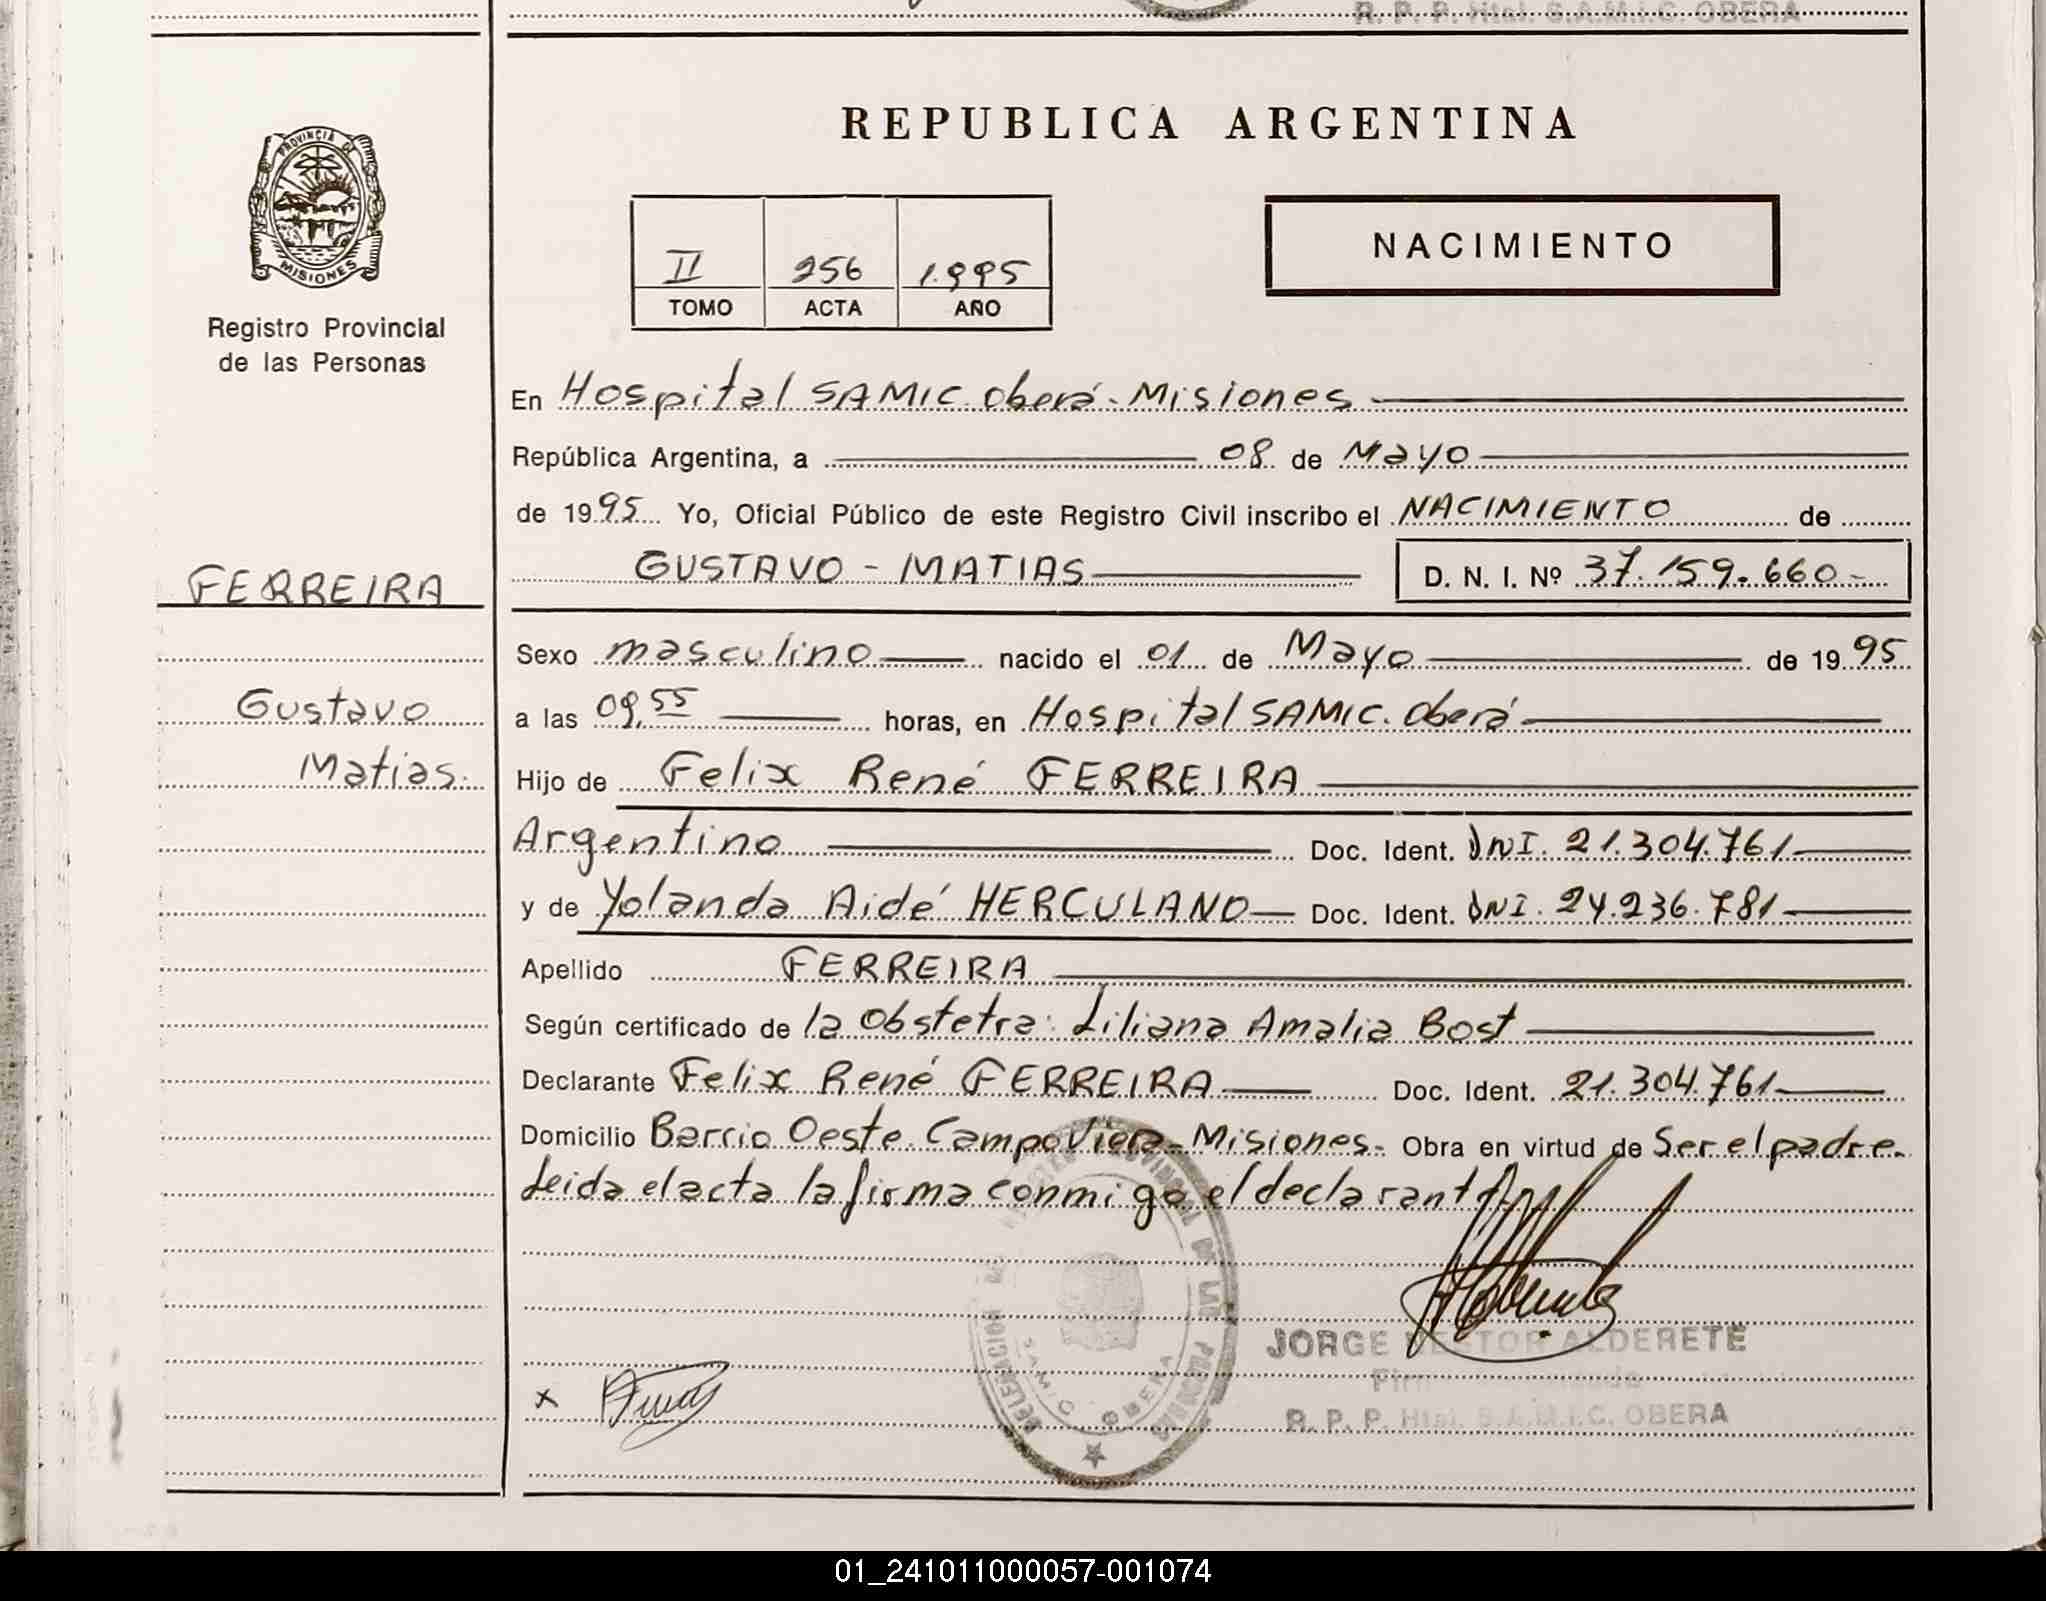 R. P. P. Htal. S.A.M.I.C. OBERA
PROVINCIA DE
MISIONES
Registro Provincial
de las Personas
FERREIRA
Gustavo
Matias.
REPUBLICA ARGENTINA
II 256 1.995
TOMO ACTA AÑO
NACIMIENTO
En Hospital SAMIC. Oberá - Misiones
República Argentina, a 08 de Mayo
de 1995 Yo, Oficial Público de este Registro Civil inscribo el NACIMIENTO de
GUSTAVO - MATIAS D. N. I. Nº 37.159.660.-
Sexo masculino nacido el 01 de Mayo de 1995
a las 09,55 horas, en Hospital SAMIC. Oberá
Hijo de Felix René FERREIRA
Argentino Doc. Ident. DNI. 21.304.761
y de Yolanda Aidé HERCULANO Doc. Ident. DNI. 24.236.781
Apellido FERREIRA
Según certificado de la Obstetra: Liliana Amalia Bost
Declarante Felix René FERREIRA Doc. Ident. 21.304.761
Domicilio Barrio Oeste. Campo Viera - Misiones- Obra en virtud de Ser el padre.
Leida el acta la firma conmigo el declarante
DELEGACION REGISTRO PROVINCIAL DE LAS PERSONAS
SAMIC OBERA
JORGE NESTOR ALDERETE
R. P. P. Htal. S.A.M.I.C. OBERA
x
01_241011000057-001074